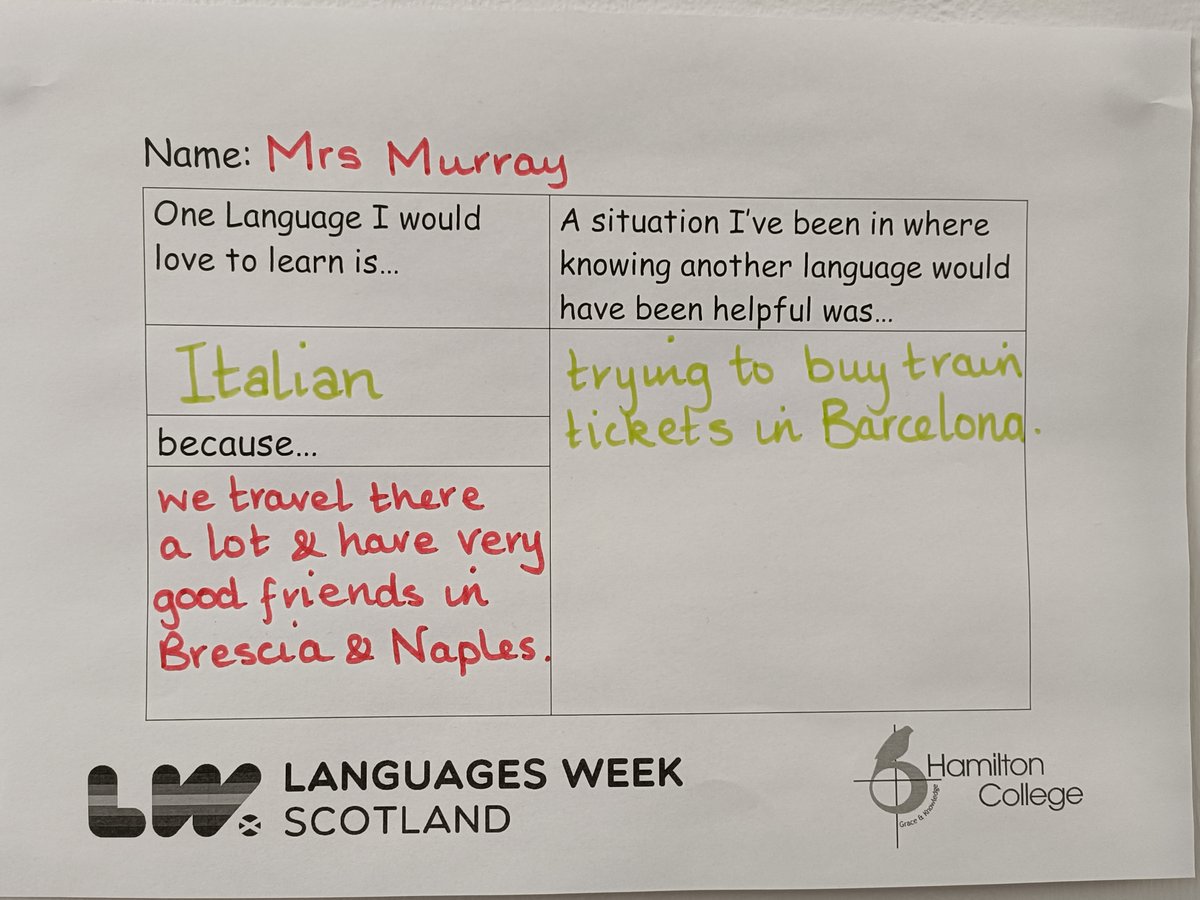 Name: Mrs Murray
One Language I would
love to learn is...
Italian
because...
we travel there
a lot & have very
good friends in
Brescia & Naples.
A situation I've been in where
knowing another language would
have been helpful was...
trying to buy train
tickets in Barcelona.
LW.
LANGUAGES WEEK
SCOTLAND
Hamilton
College
Grace & Knowledge